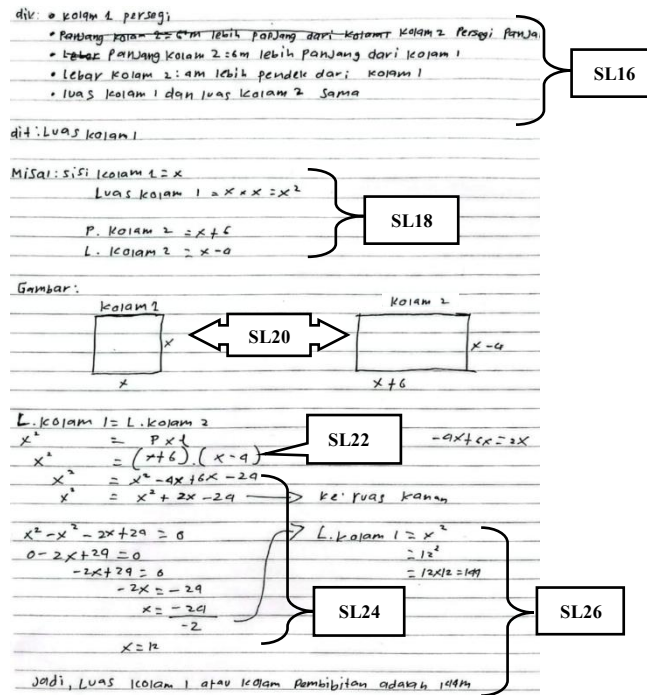 dik: • kolam 1 persegi
• Panjang kolam 2 = 6m lebih panjang dari kolam 1 kolam 2 Persegi Panja
• Lebar Panjang kolam 2 : 6m lebih Panjang dari kolam 1
• Lebar kolam 2 : 4m lebih pendek dari kolam 1
• luas kolam 1 dan luas kolam 2 sama
SL16
dit : Luas kolam 1
Misal : sisi kolam 1 = x
Luas kolam 1 = x × x = x²
P. kolam 2 = x+6
L. kolam 2 = x-4
SL18
Gambar :
kolam 1
kolam 2
SL20
x
x-4
x
x+6
L. kolam 1 = L. kolam 2
x² = P x l
x² = (x+6) . (x-4)
SL22
-4x+6x=2x
x² = x² -4x+6x -24
x² = x² + 2x -24 → ke ruas kanan
x² -x² -2x+24 = 0
0 -2x+24 = 0
-2x+24 = 0
-2x = -24
x = -24
-2
x = 12
SL24
L. kolam 1 = x²
= 12²
= 12x12 = 144
SL26
Jadi, Luas kolam 1 atau kolam Pembibitan adalah 144m